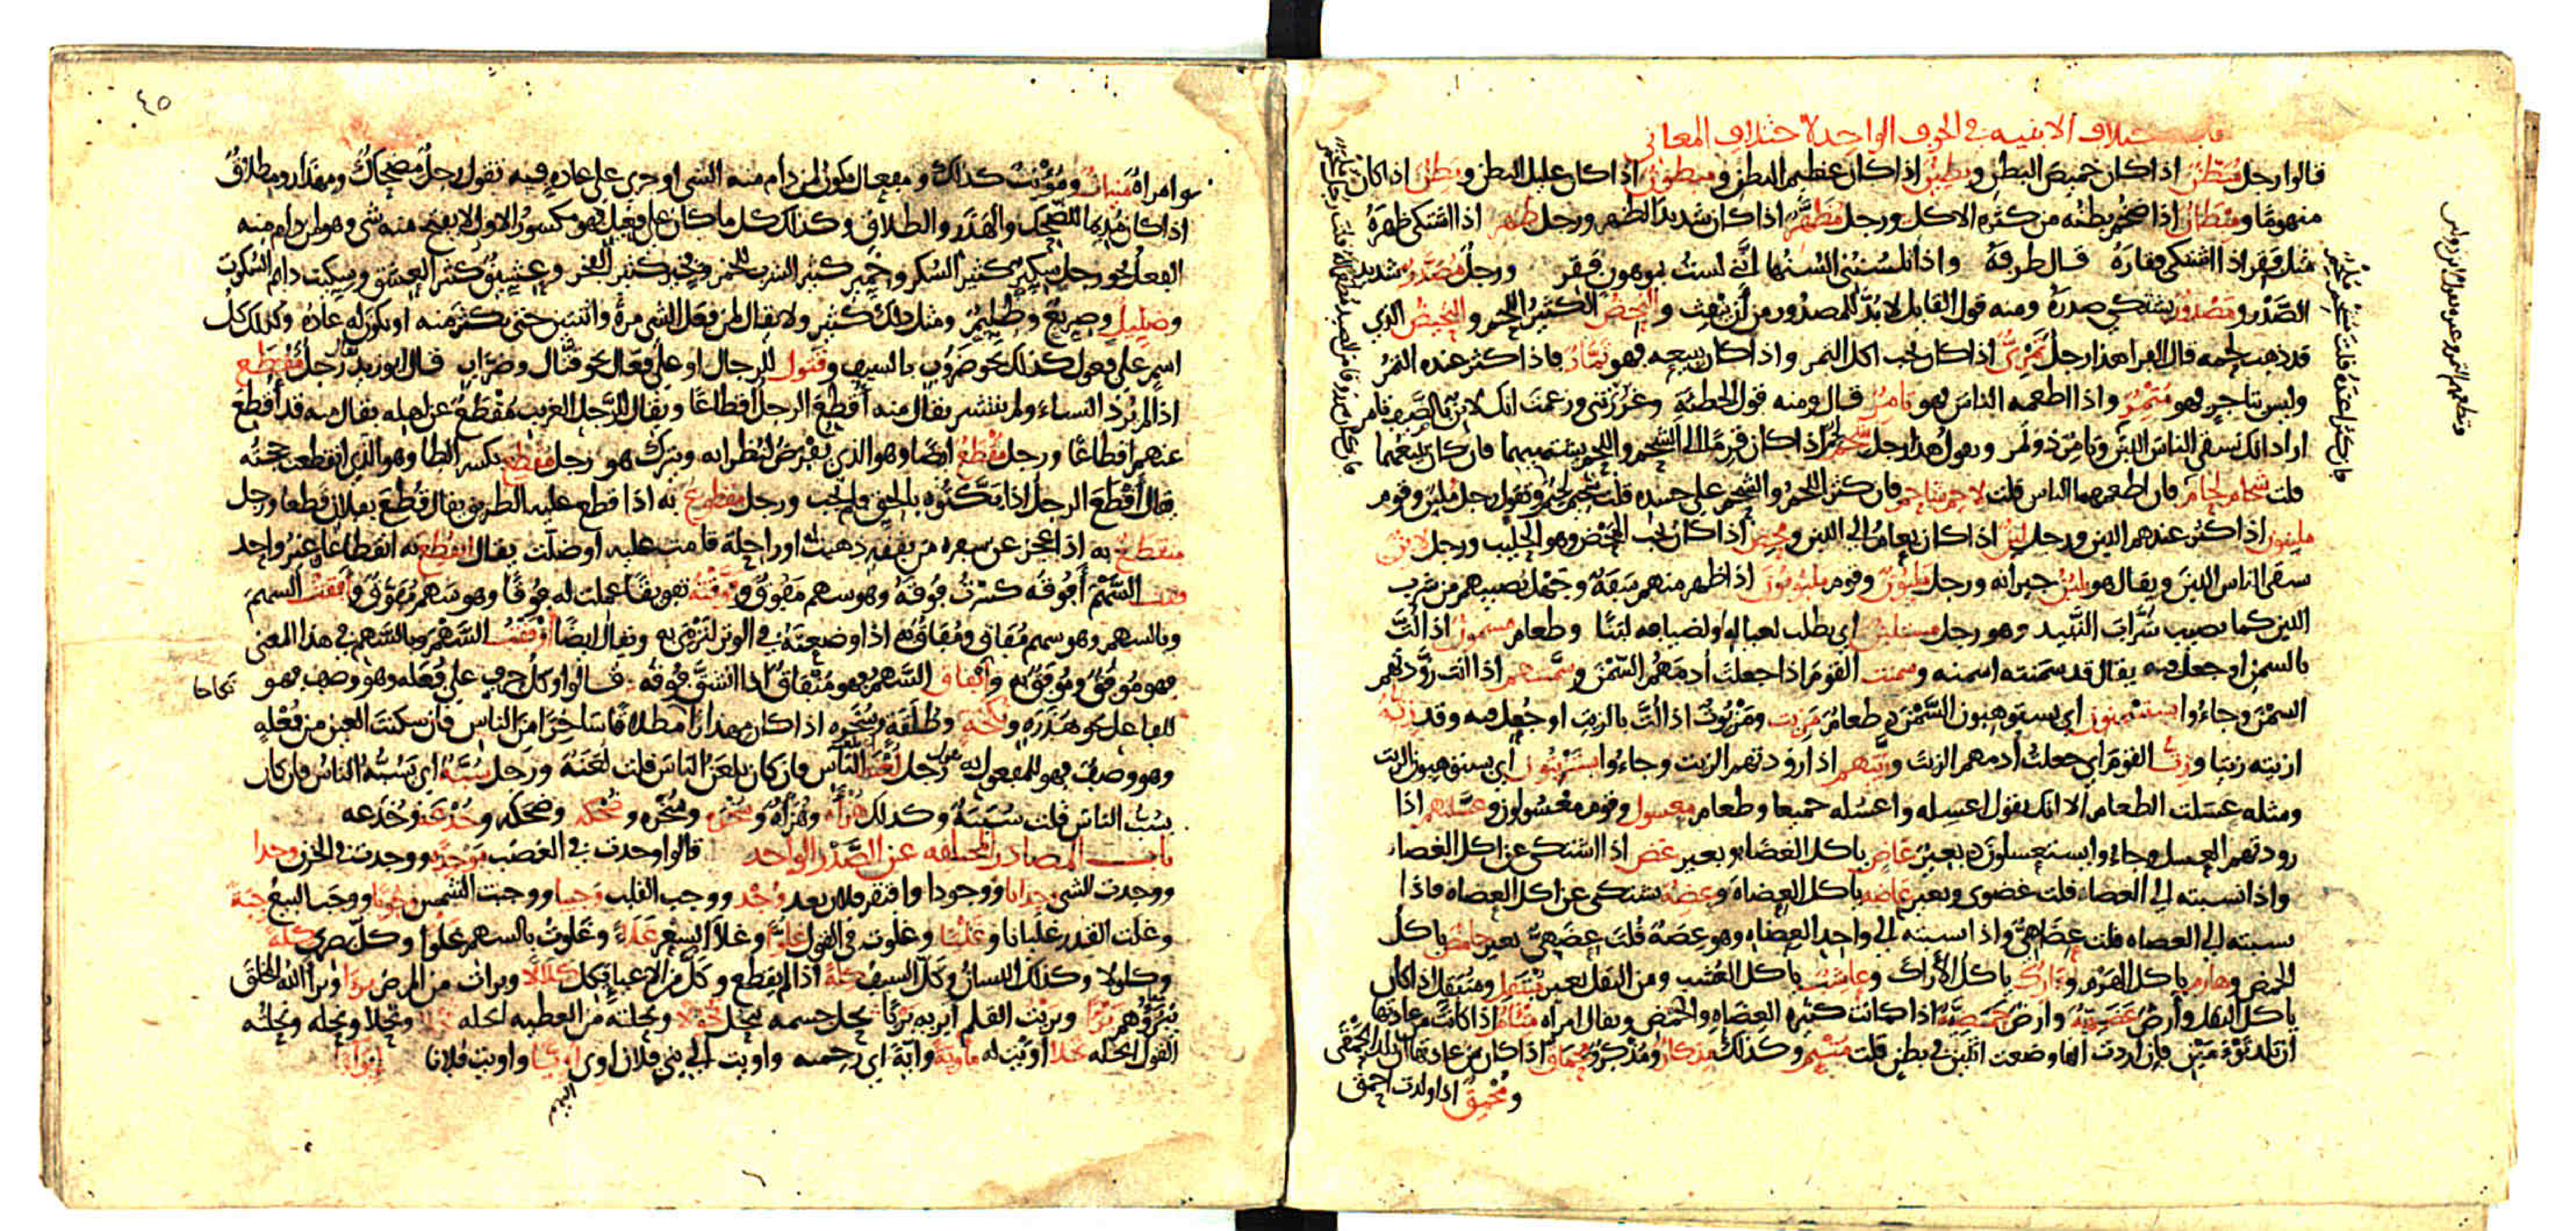 باب اختلاف الابنيه في الحرف الواحد لاختلاف المعاني
قالوا رجل مبطن اذا كان خميص البطن وبطين اذا كان عظيم البطن ومبطون اذا كان عليل البطن وبطن اذا كان
منهوما ومبطان اذا ضخم بطنه من كثره الاكل ورجل مظهر اذا كان شديد الظهر ورجل ظهر اذا اشتكى ظهره
مثل فقر اذا اشتكى فقاره قال طرفة واذا تلسنني السنها انني لست بموهون فقر ورجل مصدر شديد
الصدر ومصدور يشتكي صدره ومنه قول القايل لا بد للمصدور من ان ينفث والنحض الكثير اللحم والنحيض الذي
قد ذهب لحمه قال الفرا هذا رجل تمري اذا كان يحب اكل التمر واذا كان يبيعه فهو تمار فاذا كثر عنده التمر
وليس بتاجر فهو متمر واذا اطعمه الناس فهو تامر قال ومنه قول الحطئة وغررتني وزعمت انك لابن بالصيف تامر
اراد انك تسقي الناس اللبن وتامر ذو تمر ويقول هذا رجل شحم لحم اذا كان قرما الى الشحم واللحم يشتهيهما فان كان يبيعهما
قلت شحام لحام فان اطعمهما الناس قلت لاحم شاحم فان كثر اللحم والشحم على جسده قلت شحيم لحيم وتقول رجل ملبن وقوم
ملبنون اذا كثر عندهم اللبن ورجل لبن اذا كان يعام الى اللبن ومحض اذا كان يحب المحض وهو الحليب ورجل لابن
سقى الناس اللبن ويقال هو يلبن جيرانه ورجل ملبون وقوم ملبونون اذا ظهر منهم سفه وجهل يصيبهم من شرب
اللبن كما يصيب شراب النبيذ وهو رجل مستلبن اي يطلب لعياله او لضيافه لبنا وطعام مسمون اذا لت
بالسمن او جعل فيه يقال قد سمنته اسمنه وسمنت القوم اذا جعلت ادمهم السمن وسمنتهم اذا انت زودتهم
السمن وجاءوا يستسمنون اي يستوهبون السمن وطعام مزيت ومزيوت اذا لت بالزيت او جعل فيه وقد زته
ازيته زيتا وزت القوم اي جعلت ادمهم الزيت وزيتهم اذا زودتهم الزيت وجاءوا يستزيتون اي يستوهبون الزيت
ومثله عسلت الطعام الا انك تقول اعسله واعسله جميعا وطعام معسول وقوم معسولون وعسلتهم اذا
زودتهم العسل وجاءوا يستعسلون وبعير غاض ياكل الغضا وبعير غض اذا اشتكى عن اكل الغضا
واذا نسبته الى الغضا قلت غضوي وبعير عاضه ياكل العضاه وعضه يشتكي عن اكل العضاه فاذا
نسبته الى العضاه قلت عضاهي واذا نسبته الى واحد العضاه وهو عضة قلت عضهي بعير حامض ياكل
الحمض وهارم ياكل الهرم واارك ياكل الاراك وعاشب ياكل العشب ومن البقل بعير مبتقل ومتبقل اذا كان
ياكل البقل وارض عضهة وارض حمضة اذا كانت كثيره العضاه والحمض ويقال امراه متئام اذا كانت من عادتها
ان تلد توءمين فان اردت انها وضعت اثنين في بطن قلت متئم وكذلك مذكار ومذكر ومحماق اذا كان من عادتها ان تلد الحمقى
ومحمق اذا ولدت احمق
٤٥
وامراه ميناث ومؤنث كذلك ومفعال يكون لمن دام منه الشي او جرى على عاده فيه تقول رجل مضحاك ومهذار ومطلاق
اذا كان مديما للضحك والهذر والطلاق وكذلك كل ما كان على فعيل فهو مكسور الاول لا يفتح منه شي وهو لمن دام منه
الفعل نحو رجل سكير كثير السكر وخمير كثير الشرب للخمر وفخير كثير الفخر وعشيق كثير العشق وسكيت دائم السكوت
وضليل وصريع وظليم ومثل ذلك كثير ولا يقال لمن فعل الشي مرة واثنتين حتى يكثر منه او يكون له عادة وكذلك كل
اسم على فعول كذلك نحو ضروب بالسيف وقتول للرجال او على فعال نحو قتال وضراب قال ابو زيد رجل مقطع
اذا لم يرد النساء ولم ينتشر يقال منه اقطع الرجل اقطاعا ويقال للرجل الغريب مقطع عن اهله يقال منه قد اقطع
عنهم اقطاعا ورجل مقطع ايضا وهو الذي يفرض لنظرائه ويترك هو رجل مقطع بكسر الطا وهو الذي انقطعت حجته
يقال اقطع الرجل اذا بكتوه بالحق فلم يجب ورجل مقطوع به اذا قطع عليه الطريق يقال قطع بفلان قطعا ورجل
منقطع به اذا عجز عن سفره من نفقه ذهبت او راحلة قامت عليه او ضلت يقال انقطع به انقطاعا غير واحد
فقت السهم افوقه كسرت فوقه وهو سهم مفوق وفوقته تفويقا عملت له فوقا وهو سهم مفوق وافقت السهم
وبالسهم وهو سهم مفاق ومفاق به اذا وضعته في الوتر لترمي به ويقال ايضا اوفقت السهم وبالسهم في هذا المعنى
فهو موفق وموفق به وانفاق السهم فهو منفاق اذا انشق فوقه قالوا وكل حرف على فعله وهو وصف فهو
للفاعل نحو هذره ونكحه وطلقه وسخره اذا كان مهذارا مطلاقا ساخرا من الناس فان سكنت العين من فعله
وهو وصف فهو للمفعول به تقول رجل لعنة الناس فان كان يلعن الناس قلت لعنة ورجل سبة اي يسبه الناس فان كان
يسب الناس قلت سببة وكذلك هزأه وهزأه وسخره وسخره وضحكه وضحكه وخدعه وخدعه
باب المصادر المختلفه عن الصدر الواحد قالوا وجدت في الغضب موجدة ووجدت في الحزن وجدا
ووجدت الشي وجدانا ووجودا وافتقر فلان بعد وجد ووجب القلب وجيبا ووجبت الشمس وجوبا ووجب البيع جبة
وغلت القدر غليانا وغليا وغلوت في القول غلوا وغلا السعر غلاء وغلوت بالسهم غلوا وكل بصري كلة
وكلولا وكذلك اللسان وكل السيف كلة اذا لم يقطع وكل من الاعيا يكل كلالا وبرات من المرض برءا وبرا الله الخلق
يبرؤهم برءا وبريت القلم ابريه بريا نحل جسمه ينحل نحولا ونحلته من العطيه انحله نحلا ونحلا ونحله ونحلته
القول انحله نحلا اويت له ماوية واية اي رحمته واويت الى بني فلان اوي اويا واويت فلانا ايواء